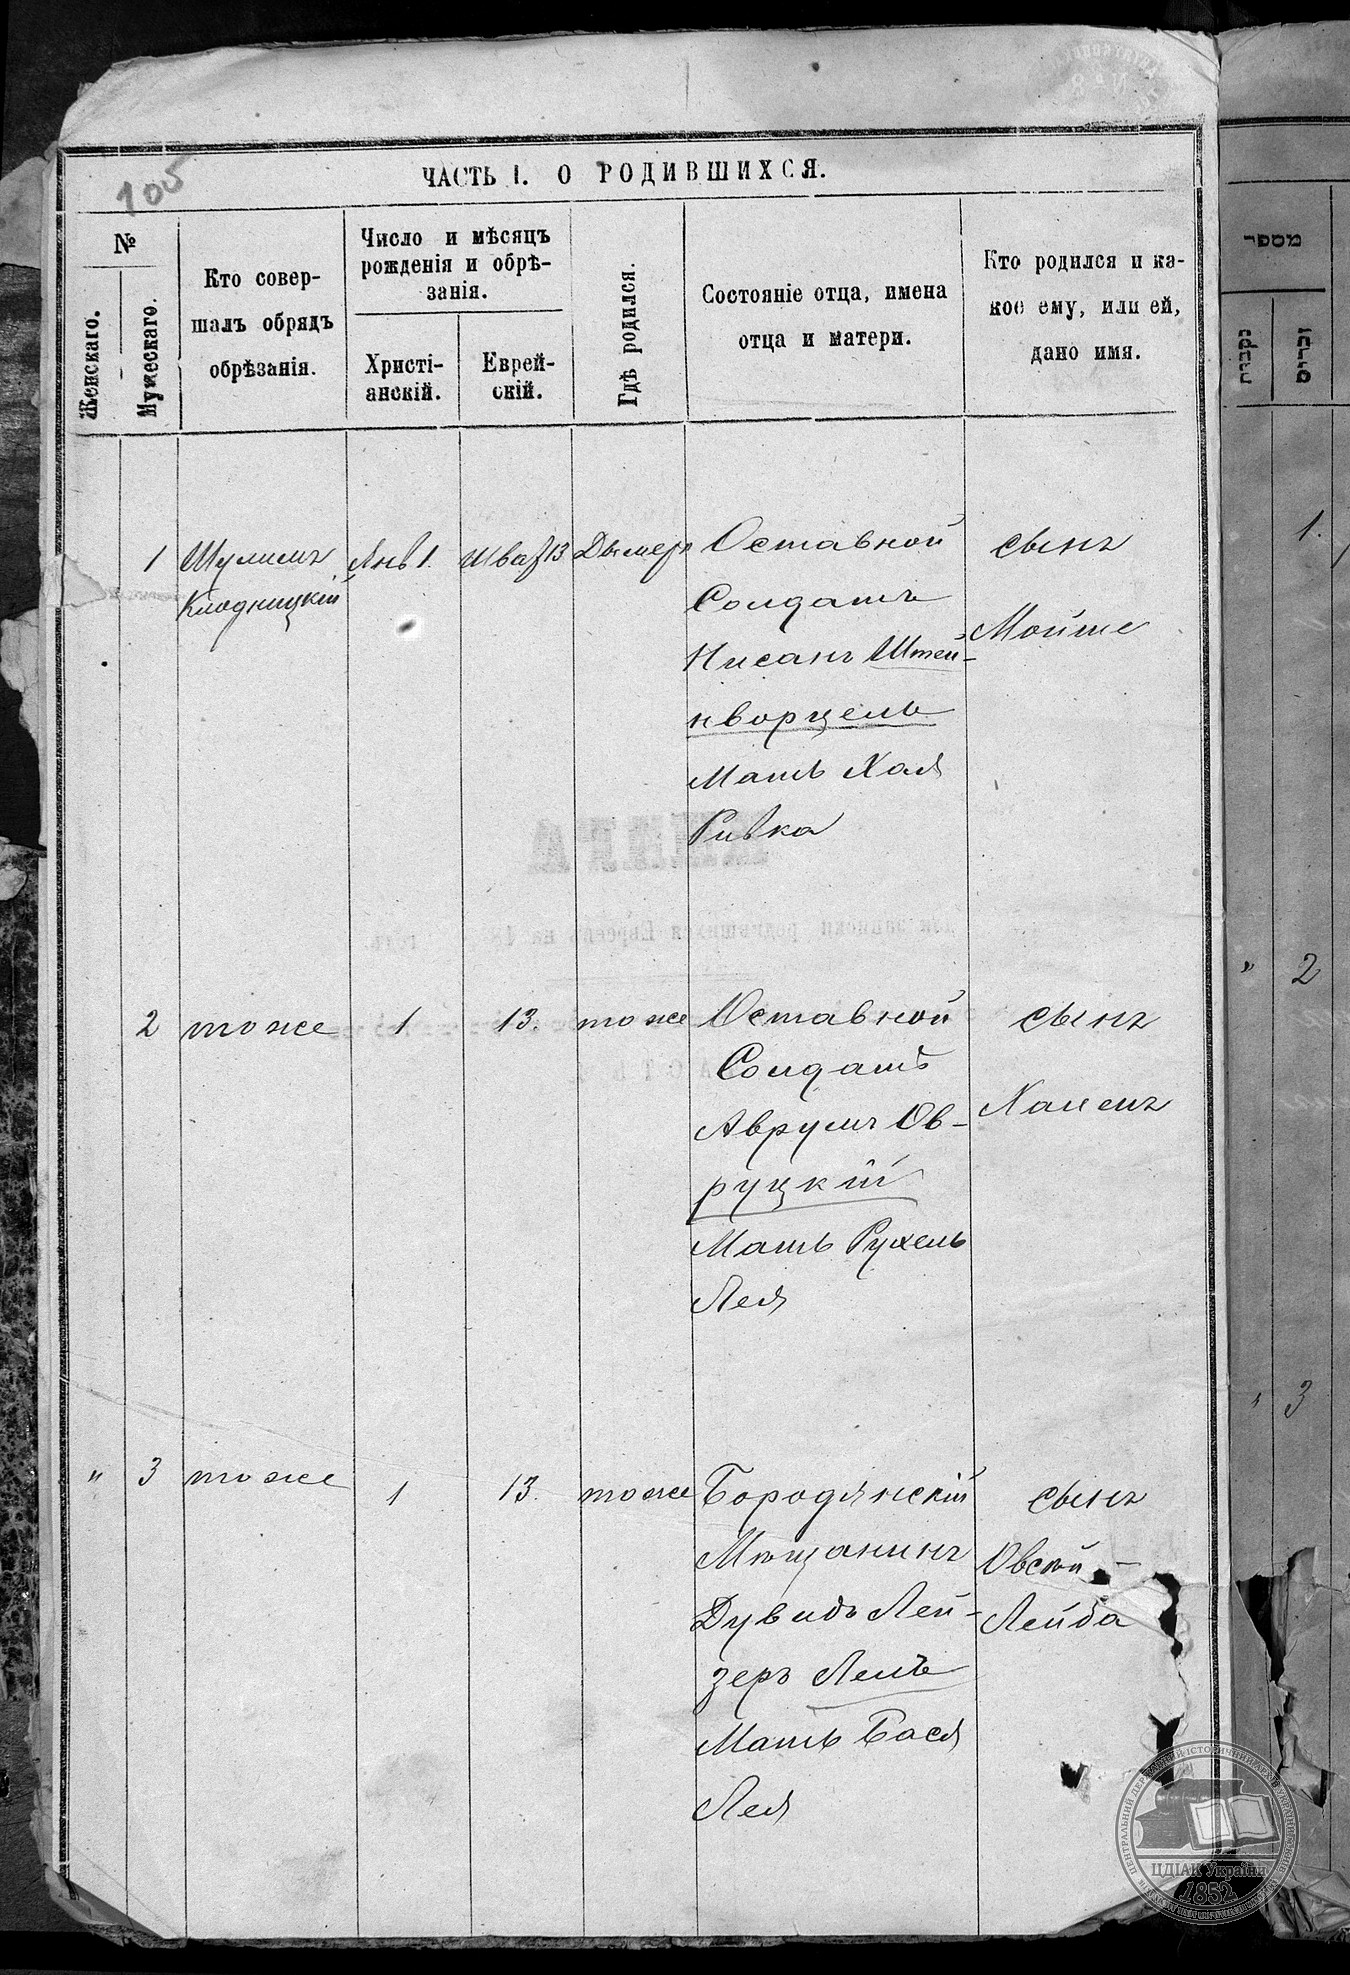 105
ЧАСТЬ I. О РОДИВШИХСЯ.
№
Женскаго.
Мужескаго.
Кто совер-
шалъ обрядъ
обрѣзанія.
Число и мѣсяцъ
рожденія и обрѣ-
занія.
Христі-
анскій.
Еврей-
скій.
Гдѣ родился.
Состояніе отца, имена
отца и матери.
Кто родился и ка-
кое ему, или ей,
дано имя.
1
Шулимъ
Клодницкій
Янв 1.
13
Дымеръ
Оставной
Солдатъ
Нисанъ Штей-
нворцель
Мать Хая
Ривка
сынъ
Мойше
2
тоже
1
13.
тоже
Оставной
Солдатъ
Аврумъ Ов-
руцкій
Мать Рухель
Лея
сынъ
Хаимъ
" 3
тоже
1
13.
тоже
Бородянскій
Мѣщанинъ
Дувидъ Лей-
зеръ
Мать Бася
Лея
сынъ
Овсѣй-
Лейба
מספר
נקבות
זכרים
1.
" 2
" 3
ЦДІАК Україна
1852